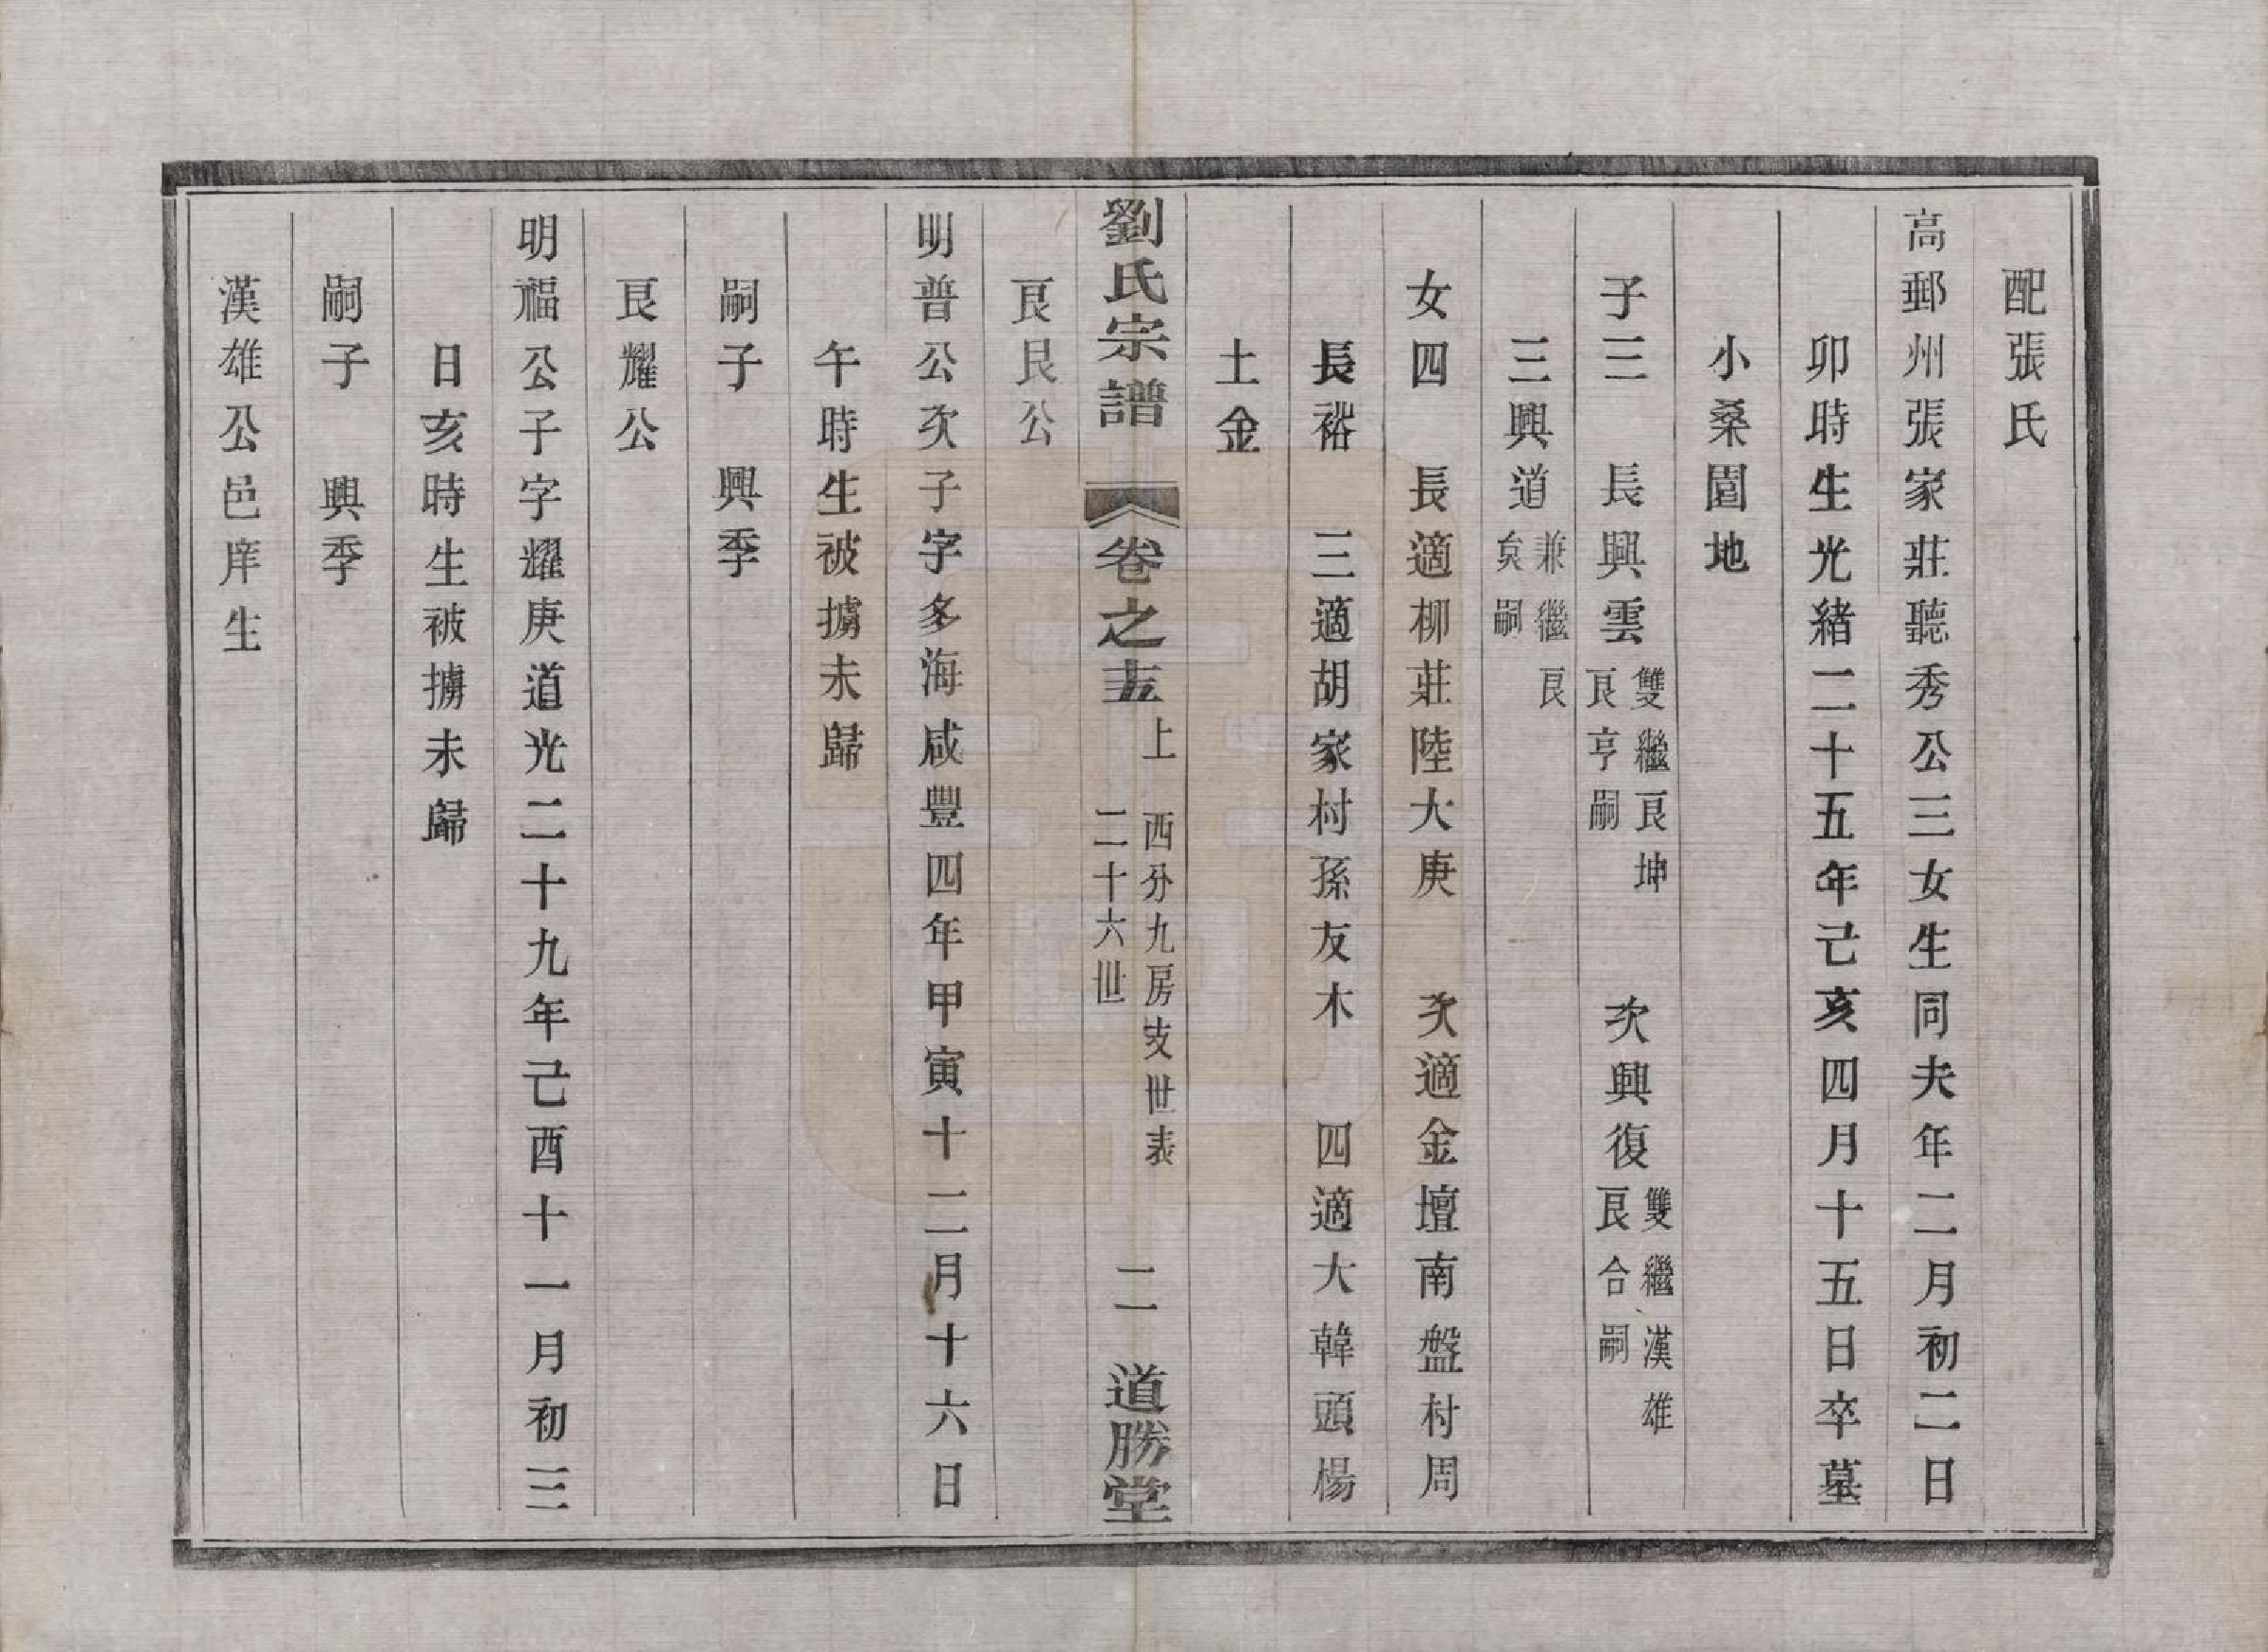 配張氏
高郵州張家莊聽秀公三女生同夫年二月初二日
卯時生光緒二十五年己亥四月十五日卒墓
小桑園地
子三　長興雲雙繼艮坤艮亨嗣　次興復雙繼漢雄艮合嗣
三興道兼繼艮矣嗣
女四　長適柳莊陸大庚　次適金壇南盤村周
長裕　三適胡家村孫友木　四適大韓頭楊
土金
劉氏宗譜　卷之十五上　西分九房支世表　二十六世　二　道勝堂
艮艮公
明普公次子字多海咸豐四年甲寅十二月十六日
午時生被擄未歸
嗣子　興季
艮耀公
明福公子字耀庚道光二十九年己酉十一月初三
日亥時生被擄未歸
嗣子　興季
漢雄公邑庠生